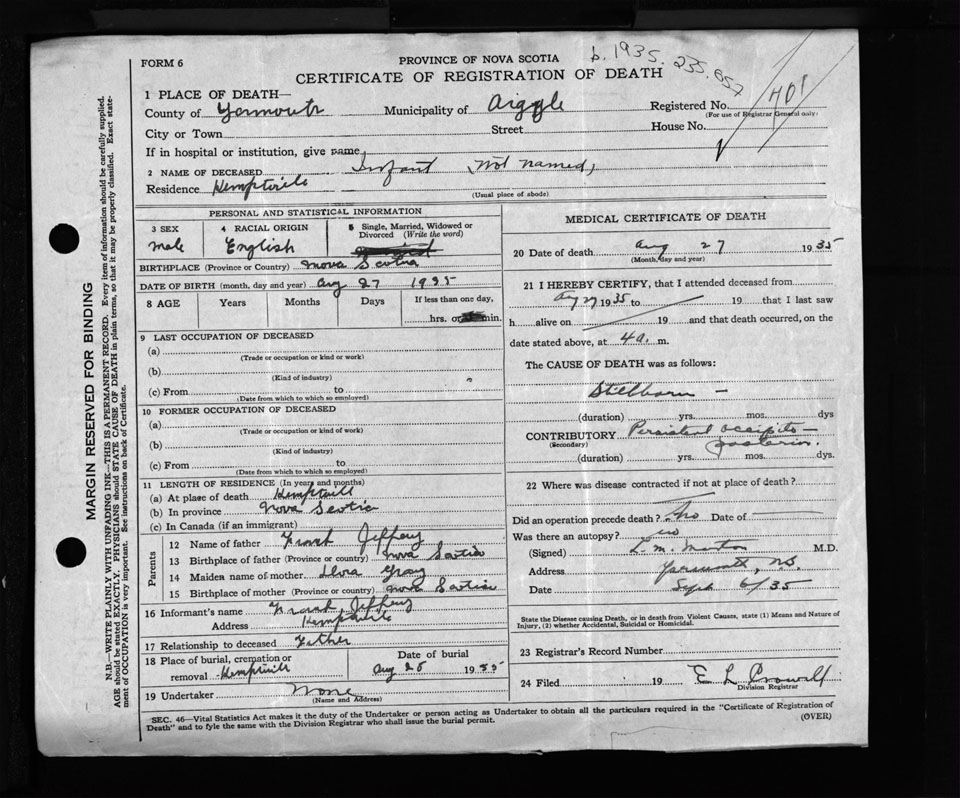 FORM 6
PROVINCE OF NOVA SCOTIA
b. 1935. 235.057
CERTIFICATE OF REGISTRATION OF DEATH
1 PLACE OF DEATH—
County of Yarmouth Municipality of Argyle Registered No. 701
(For use of Registrar General only)
City or Town Street House No.
If in hospital or institution, give name
2 NAME OF DECEASED Infant (Not named)
Residence Kemptville
(Usual place of abode)
PERSONAL AND STATISTICAL INFORMATION
3 SEX Male
4 RACIAL ORIGIN English
5 Single, Married, Widowed or Divorced (Write the word)
BIRTHPLACE (Province or Country) Nova Scotia
DATE OF BIRTH (month, day and year) Aug 27 1935
8 AGE Years Months Days If less than one day, hrs. or min.
9 LAST OCCUPATION OF DECEASED
(a)
(Trade or occupation or kind or work)
(b)
(Kind of industry)
(c) From to
(Date from which to which so employed)
10 FORMER OCCUPATION OF DECEASED
(a)
(Trade or occupation or kind of work)
(b)
(Kind of industry)
(c) From to
(Date from which to which so employed)
11 LENGTH OF RESIDENCE (In years and months)
(a) At place of death Kemptvill
(b) In province Nova Scotia
(c) In Canada (if an immigrant)
Parents
12 Name of father Frank Jeffery
13 Birthplace of father (Province or country) Nova Scotia
14 Maiden name of mother Gray
15 Birthplace of mother (Province or country) Nova Scotia
16 Informant's name Frank Jeffery
Address Kemptville
17 Relationship to deceased Father
18 Place of burial, cremation or removal Kemptvill
Date of burial Aug 28 1935
19 Undertaker None
(Name and Address)
MEDICAL CERTIFICATE OF DEATH
20 Date of death Aug 27 1935
(Month, day and year)
21 I HEREBY CERTIFY, that I attended deceased from
Aug 27 1935 to 19 that I last saw
h alive on 19 and that death occurred, on the
date stated above, at 4 a. m.
The CAUSE OF DEATH was as follows:
Stillborn —
(duration) yrs. mos. dys
CONTRIBUTORY Persistent occipito-
(Secondary) posterior.
(duration) yrs. mos. dys.
22 Where was disease contracted if not at place of death?
Did an operation precede death? No Date of
Was there an autopsy? no
(Signed) L. M. Morton M.D.
Address Yarmouth, N.S.
Date Sept 6/35
State the Disease causing Death, or in death from Violent Causes, state (1) Means and Nature of Injury, (2) whether Accidental, Suicidal or Homicidal.
23 Registrar's Record Number
24 Filed 19 E L
Division Registrar
SEC. 46—Vital Statistics Act makes it the duty of the Undertaker or person acting as Undertaker to obtain all the particulars required in the "Certificate of Registration of
Death" and to fyle the same with the Division Registrar who shall issue the burial permit. (OVER)
MARGIN RESERVED FOR BINDING
N.B.—WRITE PLAINLY WITH UNFADING INK—THIS IS A PERMANENT RECORD. Every item of information should be carefully supplied.
AGE should be stated EXACTLY. PHYSICIANS should STATE CAUSE OF DEATH in plain terms, so that it may be properly classified. Exact state-
ment of OCCUPATION is very important. See instructions on back of Certificate.